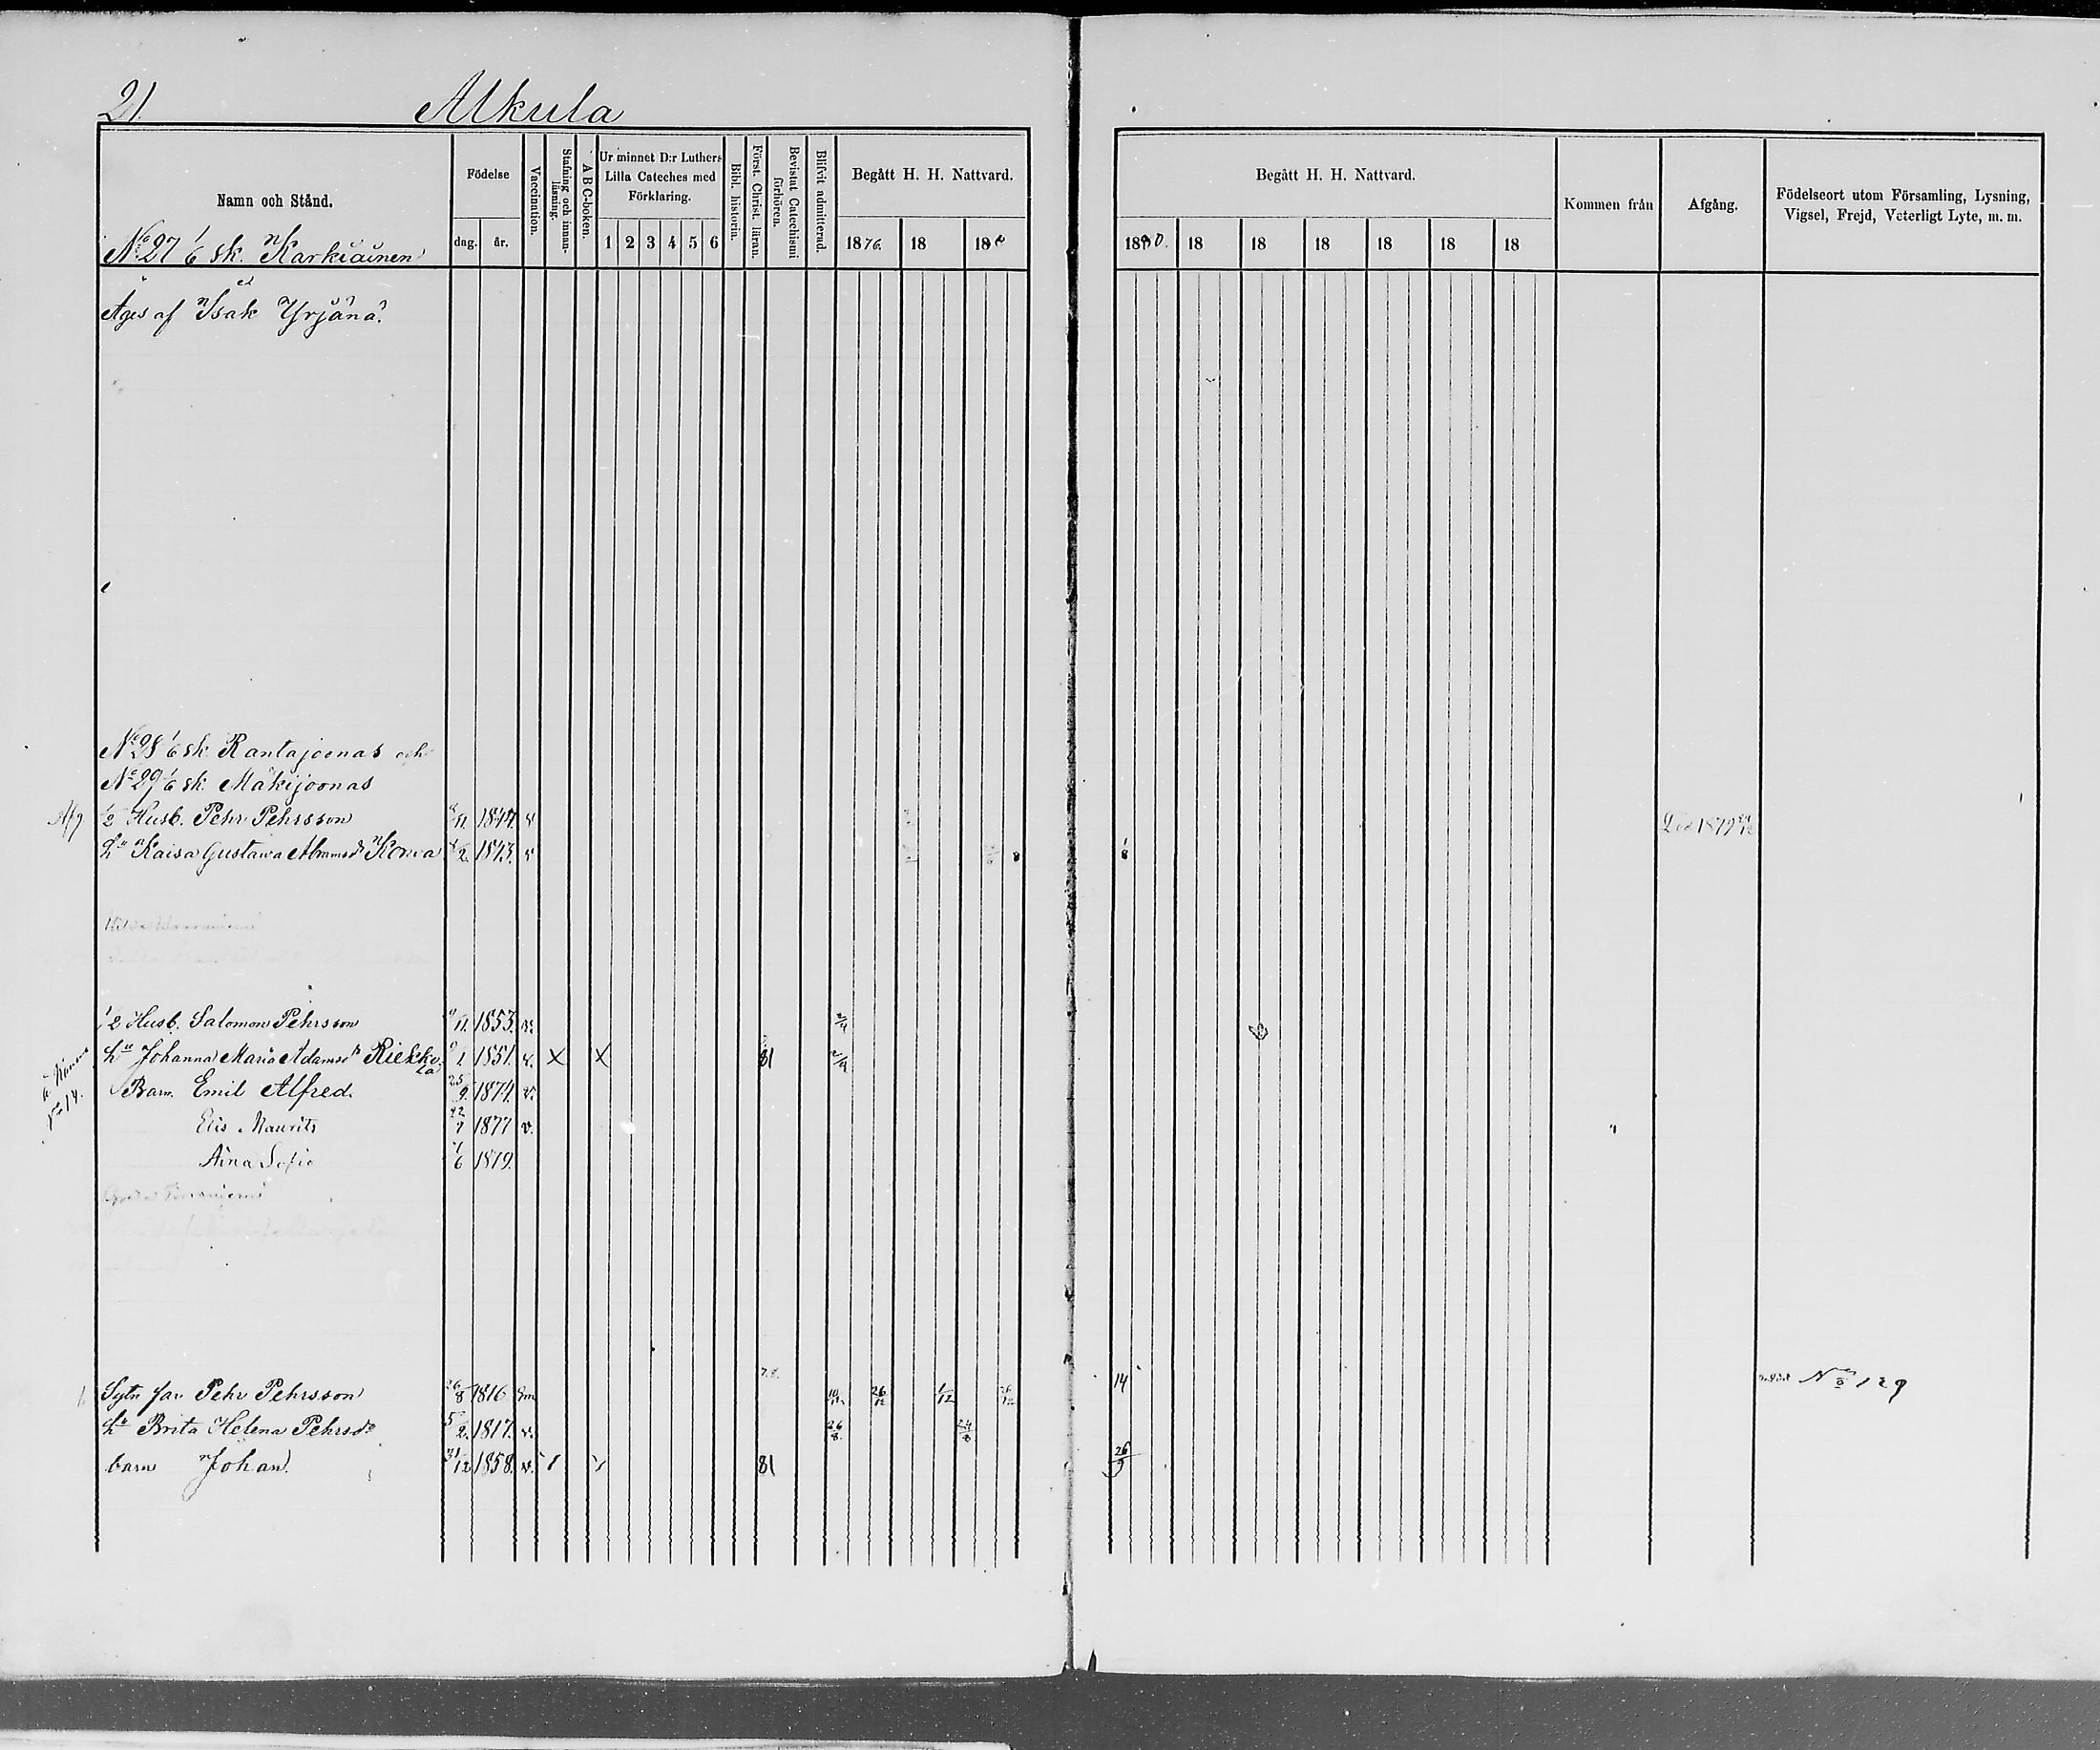 21.
Alkula
Namn och Stånd.
Födelse
dag. år.
Vaccination.
Stafning och innan-läsning.
A B C-boken.
Ur minnet D:r Luthers
Lilla Cateches med
Förklaring.
1 2 3 4 5 6
Bibl. historia.
Först. Christ. läran.
Bevistat Catechismi förhören.
Blifvit admitterad.
Begått H. H. Nattvard.
1876. 18 18
Begått H. H. Nattvard.
1880. 18 18 18 18 18 18
Kommen från
Afgång.
Födelseort utom Församling, Lysning,
Vigsel, Frejd, Veterligt Lyte, m. m.
No 27 1/6 sk. Karkiainen
Äges af Isak Yrjänä.
No 28 1/6 sk. Rantajoonas och
No 29 1/6 sk. Mäkijoonas
Afg 1/2 Husb. Pehr Pehrsson 11. 1847. v Död 1879
hu Kaisa Gustava Abramsdr Korva 2. 1843. v 8 1/8
1/2 Husb. Salomon Pehrsson 11. 1853. v.
hu Johanna Maria Adamsdr Riekkola 1. 1851. v. X X 81
Barn. Emil Alfred. 25/9. 1874. v.
Elis Maurits 22/7 1877 v.
Aina Sofia 6 1879.
Sytn. far Pehr Pehrsson 26/8 1816 26/12 1/12 14 No 129
hu Brita Helena Pehrsdr 5/2. 1817. v. 26/8. 24/8
barn Johan. 31/12 1858. v. 81 26/9